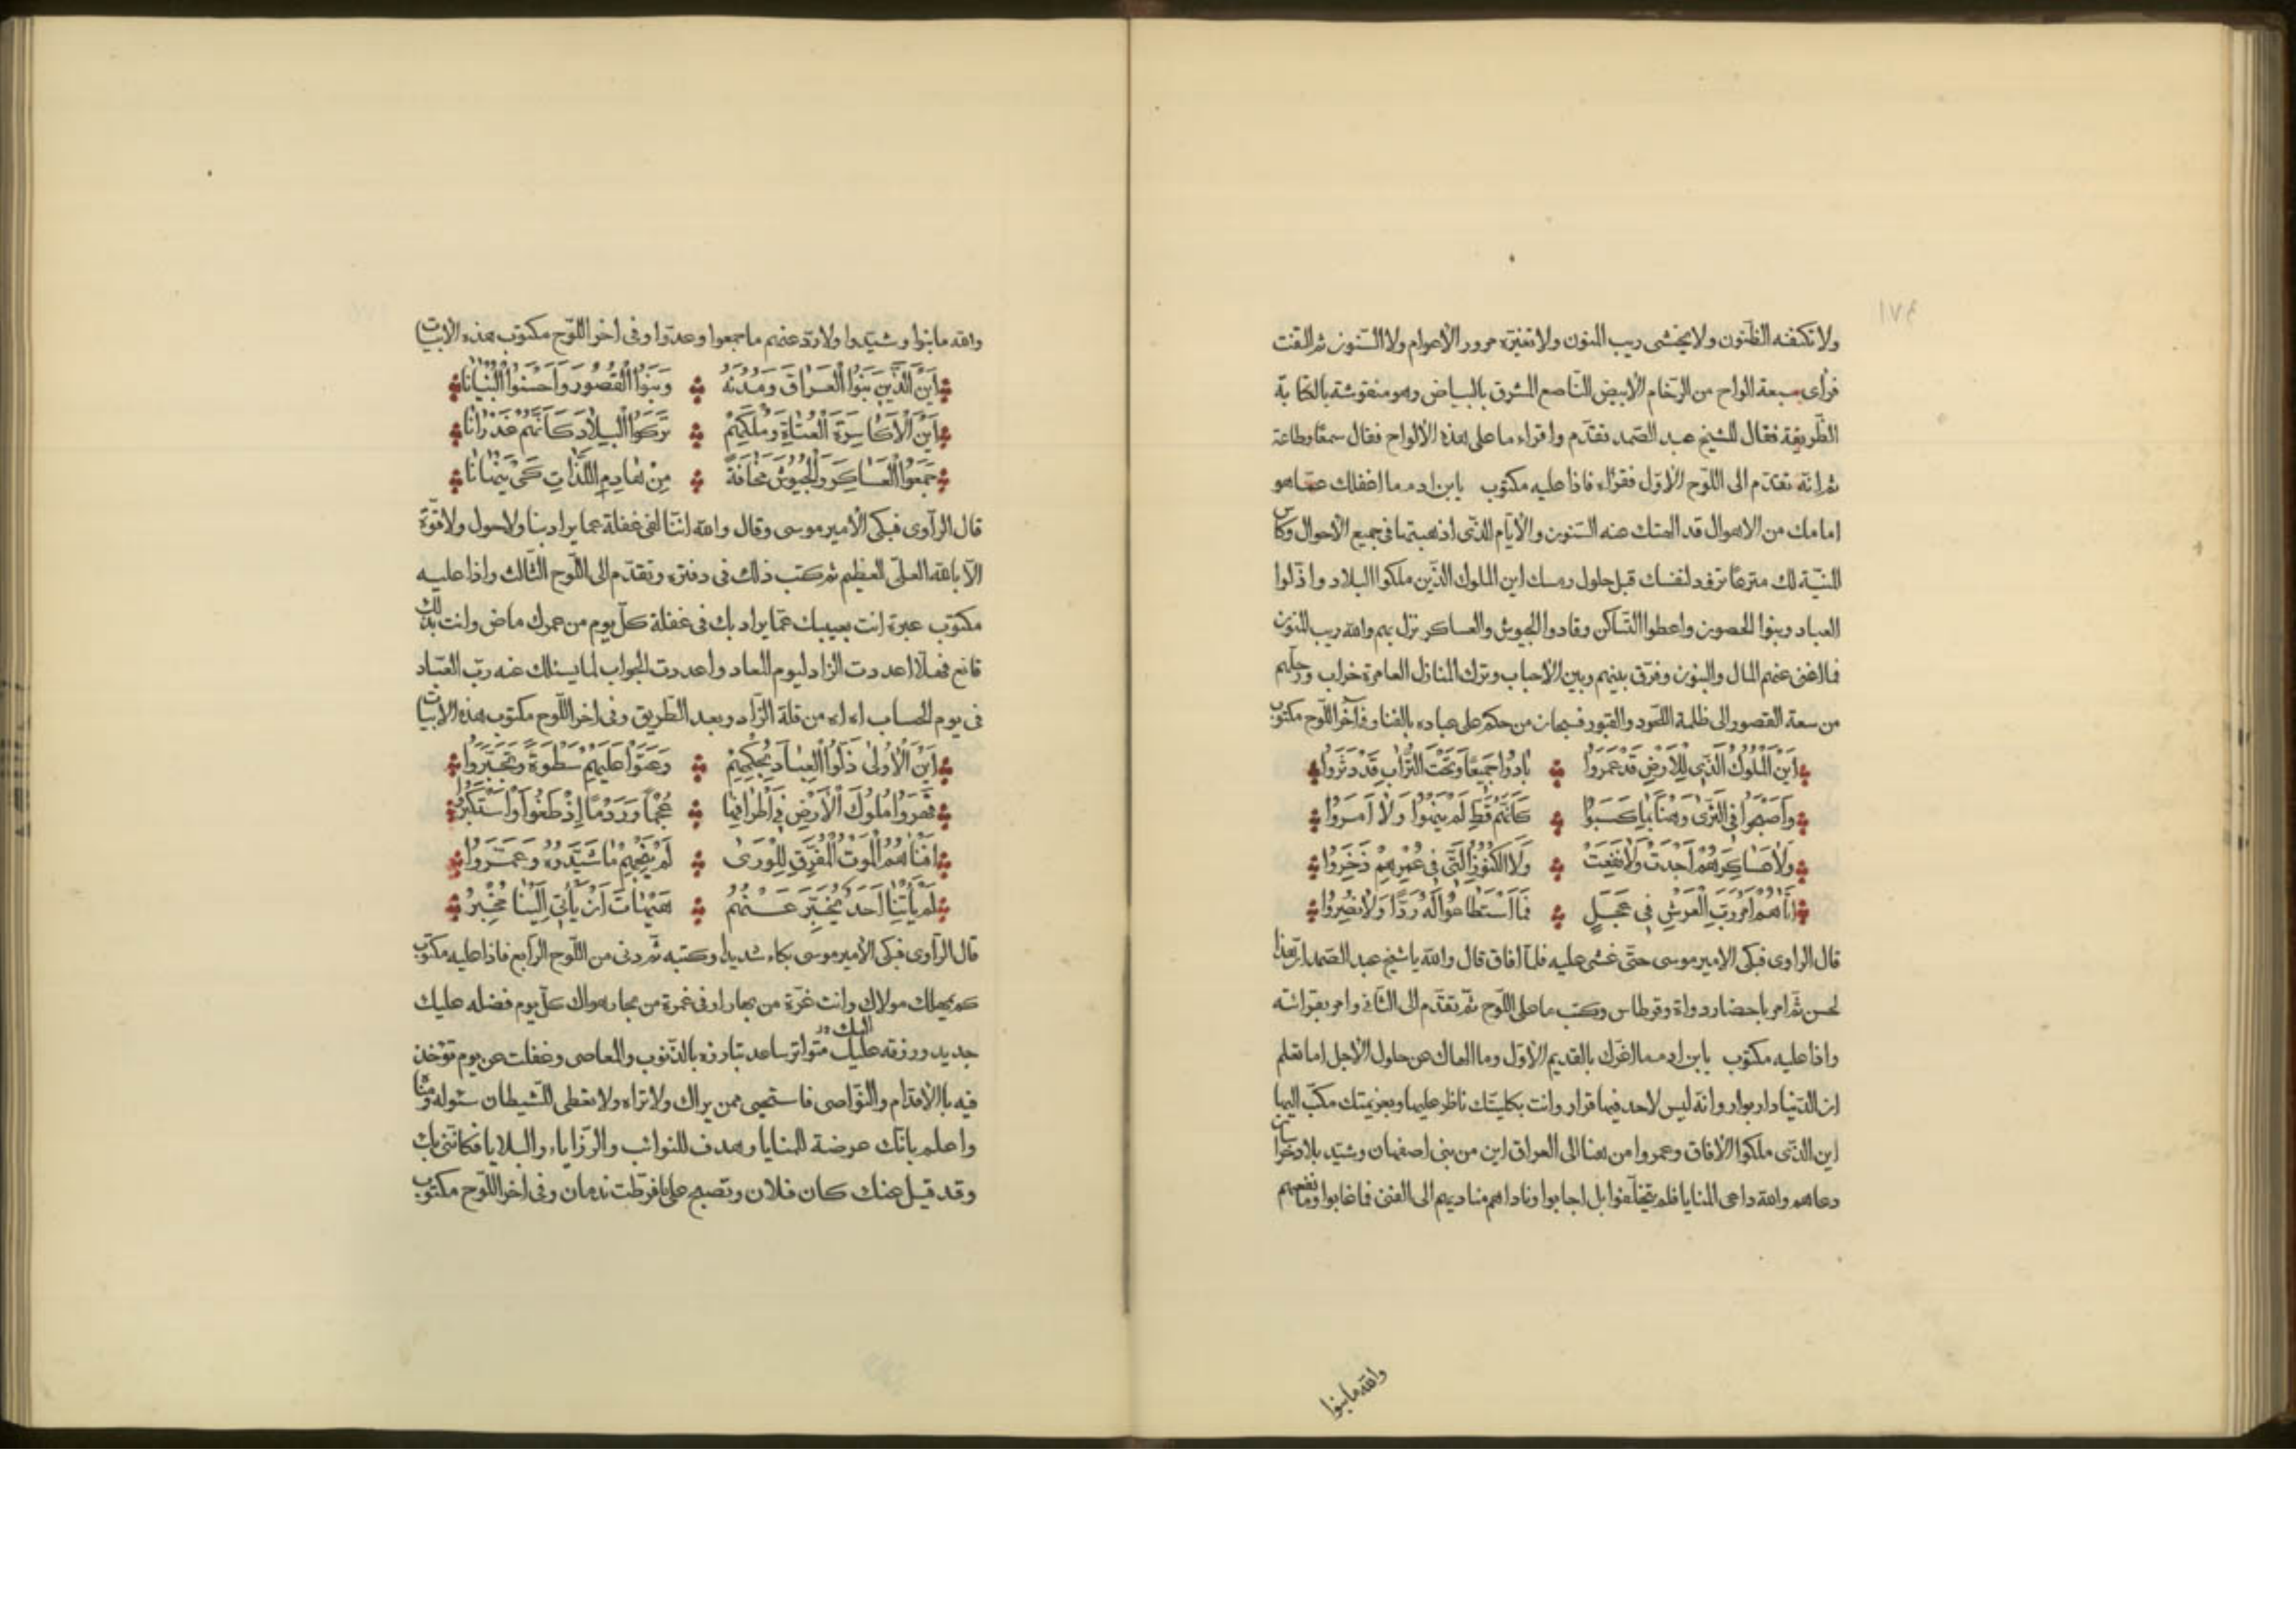 ١٧٤
ولا تكنفه الظنون ولا يخشى ريب المنون ولا تغيّره مرور الأعوام ولا السّنون ثم التفت
فرأى سبعة الواح من الرّخام الأبيض النّاصع المشرق بالبياض وهو منقوشة بالكتابة
الظّريفة فقال للشيخ عبد الصّمد تقدّم واقراء ما على هذه الألواح فقال سمعًا وطاعة
ثم انّه تقدّم الى اللّوح الأوّل فقراء فاذا عليه مكتوب يابن ادم ما اغفلك عمّا هو
امامك من الاهوال قد الهتك عنه السّنون والأيّام الذي اذهبتها في جميع الأحوال وكاس
المنيّة لك مترعًا تزود لنفسك قبل حلول رمسك اين الملوك الذّين ملكوا البلاد واذلوا
العباد وبنوا الحصون واعطوا التساكن وقادوا الجيوش والعساكر نزل بهم والله ريب المنون
فما اغنى عنهم المال والبنون وفرّق بينهم وبين الأحباب وترك المنازل العامرة خراب ورحلهم
من سعة القصور الى ظلمة اللحود والقبور فسبحان من حكم على عباده بالفنا وفي آخر اللّوح مكتوب
اَينَ الْمُلُوكُ الَّذي لِلاَرضِ قَدْ عَمَروا بادُوا جَميعًا وَتَحْتَ التُّرابِ قَدْ دَثَرُوا
وَاَصْبَحُوا فِي الثَّرَى رَهْنًا بِما كَسَبُوا كَاَنَّهُم قَطِ لَمْ يَنْهَوا وَلاَ اَمَرُوا
وَلاَ عَسَاكِرَهُمْ اَجْدَتْ وَلاَ نَفَعَتْ وَلاَ الكُنُوزُ الَّتي في عُمْرِهِمْ ذَخَرُوا
اَتَاهُمْ اَمْرُ رَبِّ الْعَرْشِ في عَجَلٍ فَمَا اسْتَطَاعُوا لَهُ رَدًّا وَلاَ نُصِرُوا
قال الراوى فبكى الامير موسى حتّى غشى عليه فلمّا افاق قال والله يا شيخ عبد الصّمد انّ هذا
لحسن ثمّ امر باحضار دواة وقرطاس وكتب ما على اللّوح ثمّ تقدّم الى الثّاني وامر بقرائته
واذا عليه مكتوب يابن ادم ما اغرّك بالقديم الأوّل وما الهاك عن حلول الأجل اما تعلم
ان الدّنيا دار بوار وانّه ليس لاحد فيها قرار وانت بكليتك ناظر عليها وبعزيمتك مكبّ اليها
اين الذّي ملكوا الأفاق وعمروا من هنا الى العراق اين من بنى اصفهان وشيّد بلاد خراسان
دعاهم والله داعى المنايا فلم يتخلّفوا بل اجابوا وناداهم مناديهم الى الفنى فما غابوا وما نفعهم
والله ما بنوا
والله ما بنوا وشيّدوا ولا ردّ عنهم ما جمعوا وعدّوا وفى اخر اللّوح مكتوب هذه الأبيات
اَينَ الَّذينَ بَنَوُا الْعِرَاقَ وَمُدْنَهُ وَبَنَوُا الْقُصُورَ وَاَحْسَنُوا الْبُنْيَانَا
اَينَ الْأَكَاسِرَةَ الْعُتَاةِ وَمُلْكِهِمْ تَرَكُوا الْبِلاَدَ كَاَنَّهُمْ
جَمَعُوا الْعَسَاكِرَ وَالْجُيُوشَ مَخَافَةً مِنْ هَادِمِ اللَّذَّاتِ
قال الرّاوى فبكى الأمير موسى وقال والله انّنا لفى غفلة عما يراد بنا ولا حول ولا قوّة
الّا بالله العلىّ العظيم ثم كتب ذلك فى دفتره وتقدّم الى اللّوح الثّالث واذا عليه
مكتوب عبرة انت بعيبك عمّا يراد بك فى غفلة كلّ يوم من عمرك ماض وانت بذلك
قانع فهلّا اعددت الزّاد ليوم المعاد واعددت الجواب لما يسئلك عنه ربّ العبّاد
فى يوم الحساب اه اه من قلة الزّاد وبعد الطّريق وفى اخر اللّوح مكتوب هذه الأبيات
اَيْنَ الْأُولَى ذَلُّوا الْعِبَادَ بِحُكْمِهِمْ وَعَتَوْا عَلَيْهِمْ سَطْوَةً وَتَجَبَّرُوا
قَهَرُوا مُلُوكَ الْأَرْضِ فِي اَطْرَافِهَا عُجْمًا وَرَدْمًا اِذْ طَغَوْا وَاسْتَكْبَرُوا
اَفْنَاهُمُ الْمَوْتُ الْمُفَرِّقِ لِلْوَرَى لَمْ يُنْجِهِمْ مَا شَيَّدُوهُ وَعَمَّرُوا
لَمْ يَأْتِنَا اَحَدٌ يُخَبِّرُ عَنْهُمُ هَيْهَاتَ اَنْ يَأْتِي اِلَيْنَا مُخْبِرُ
قال الرّاوى فبكى الأمير موسى بكاء شديدا وكتبه ثمّ دنى من اللّوح الرّابع فاذا عليه مكتوب
كم يمهلك مولاك وانت غرّة من بحار او فى غمرة من بحار هواك كلّ يوم فضله عليك
جديد ورزقه عليك متواتر ساعد تبارزه بالذّنوب والمعاصى وغفلت عن يوم تؤخذ
فيه بالأقدام والنّواصى فاستحيى ممن يراك ولا تراه ولا تعطى الشّيطان سئوله
واعلم بانّك عرضة للمنايا وهدف للنوائب والرّزاياء والبلايا فكأنّنى بك
وقد قيل عنك كان فلان وتصبح على ما فرّطت ندمان وفى اخر اللّوح مكتوب